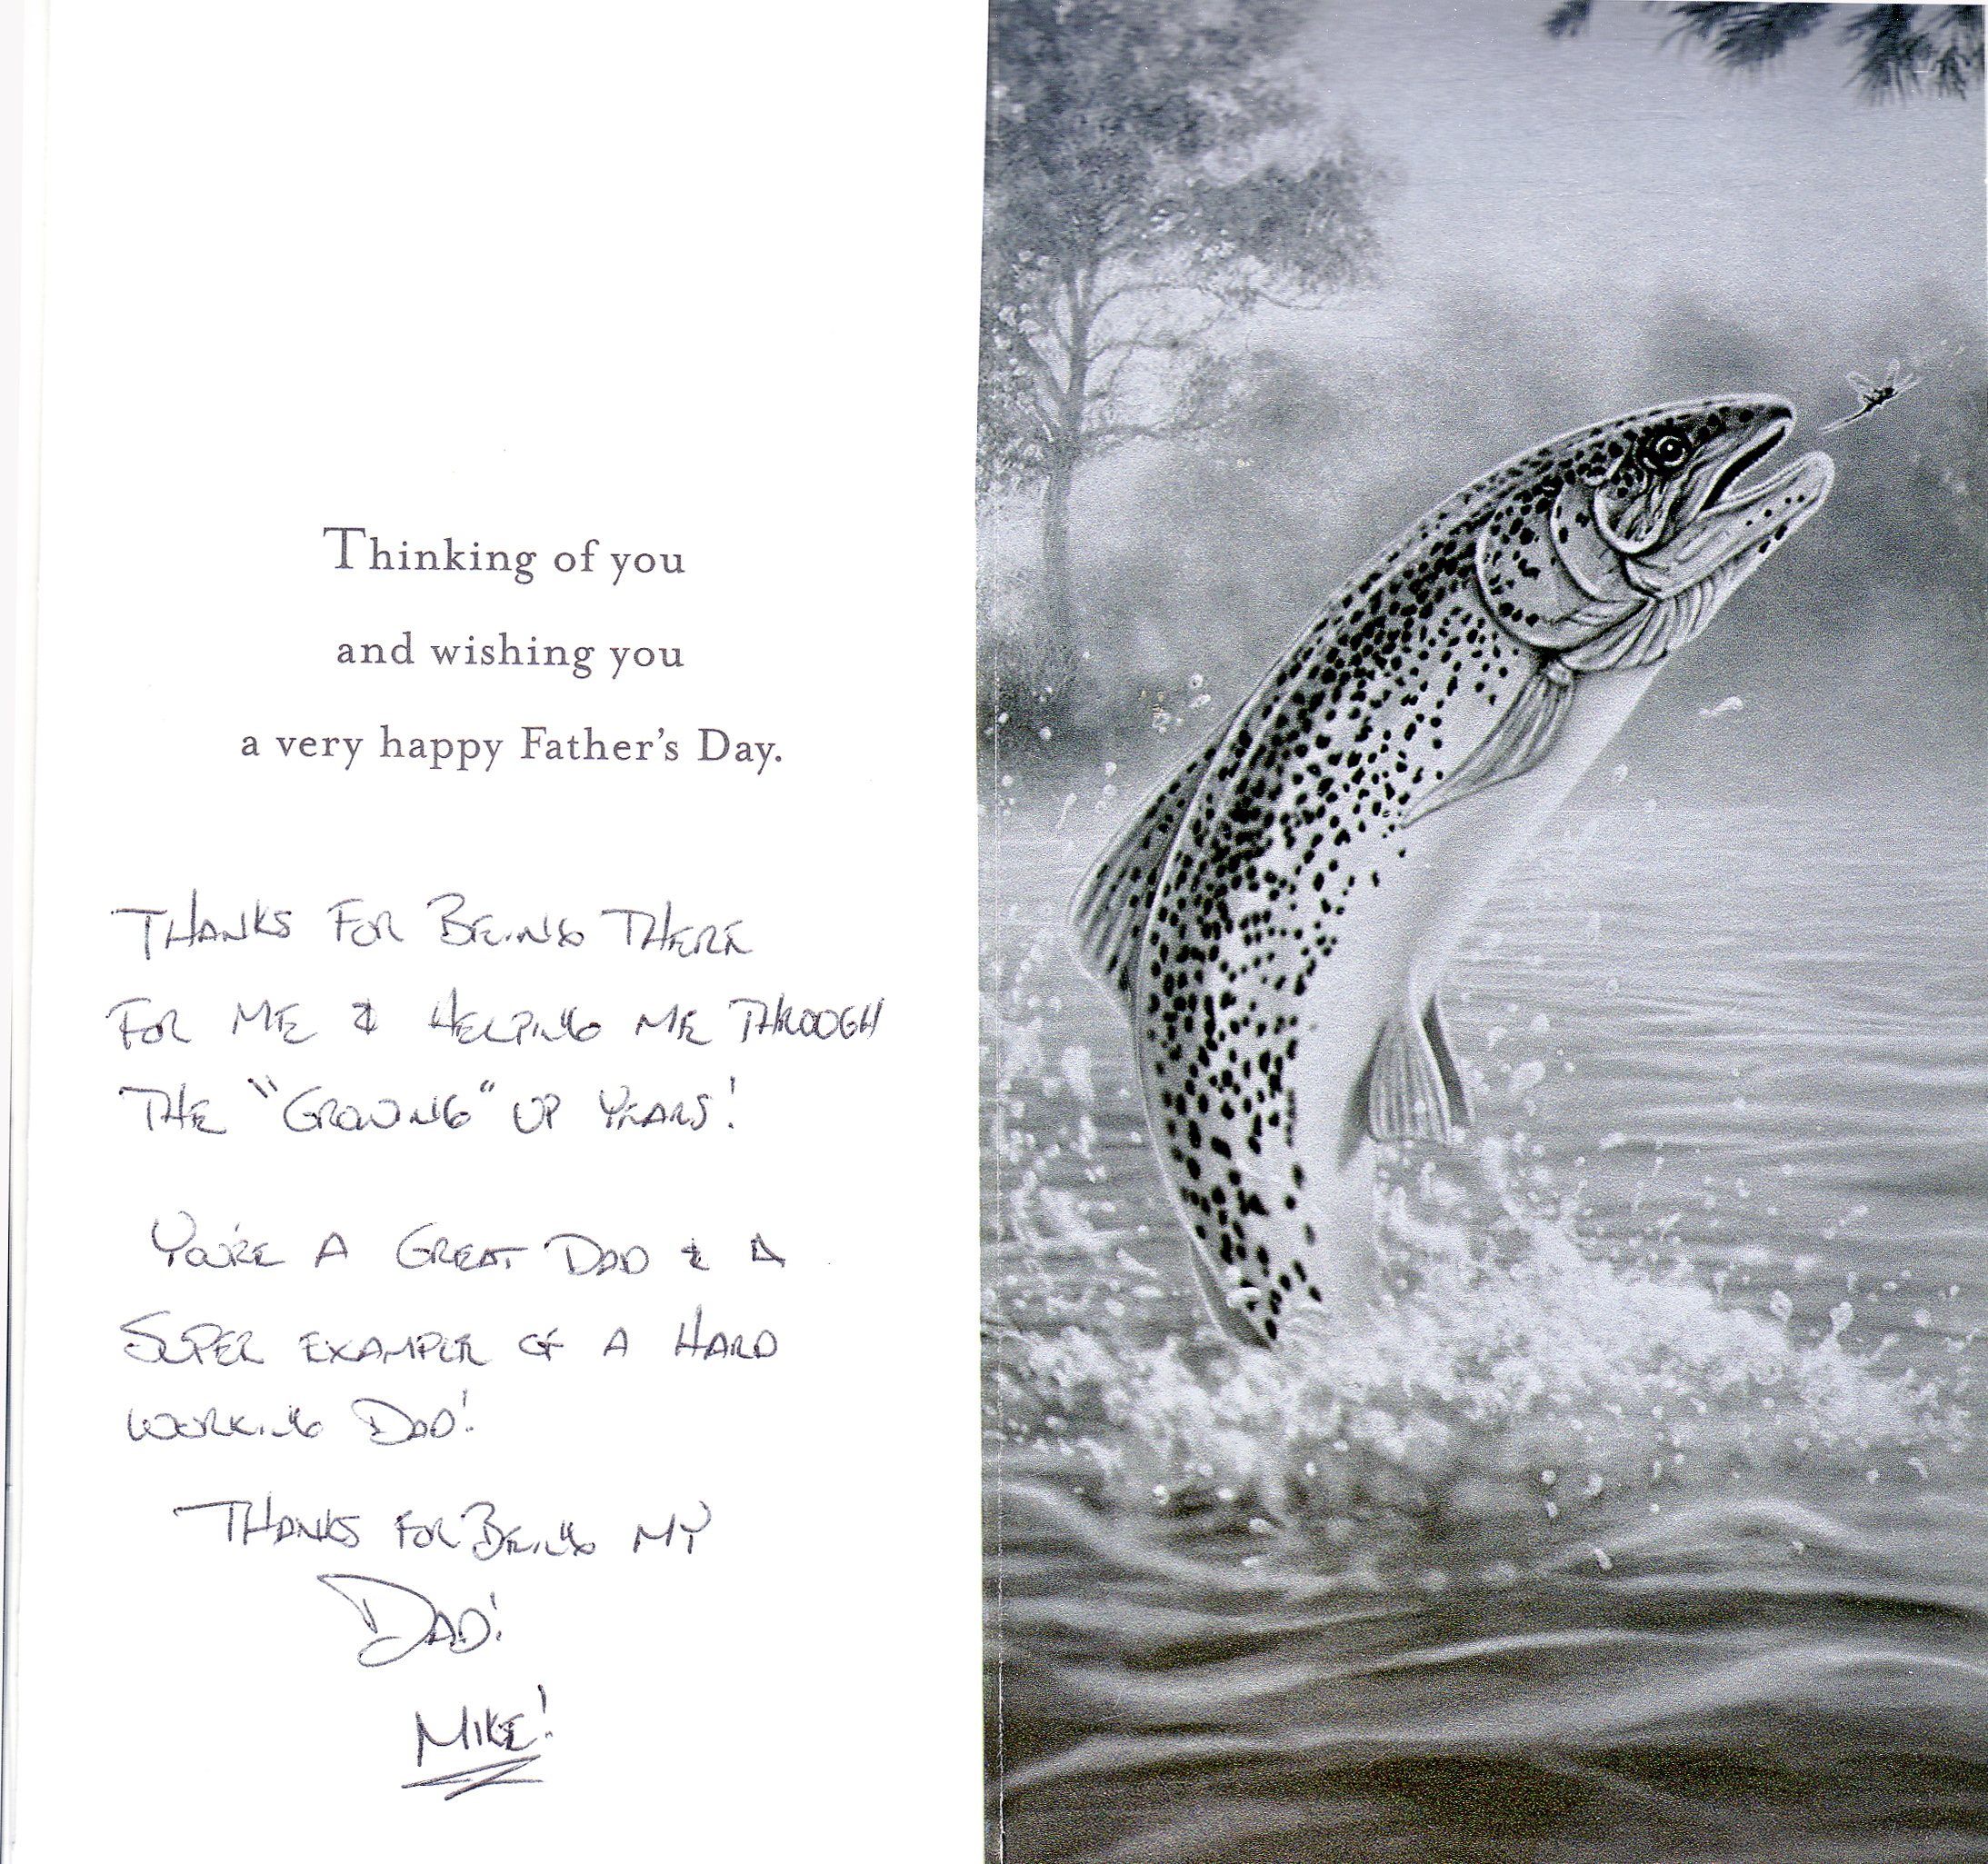 Thinking of you
and wishing you
a very happy Father's Day.
THANKS FOR BEING THERE
FOR ME & HELPING ME THROUGH
THE "GROWING" UP YEARS!
YOU'RE A GREAT DAD & A
SUPER EXAMPLE OF A HARD
WORKING DAD!
THANKS FOR BEING MY
DAD!
MIKE!